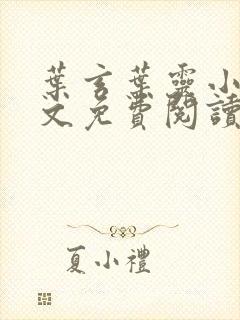 葉言葉靈小
文免費閱讀
夏小禮